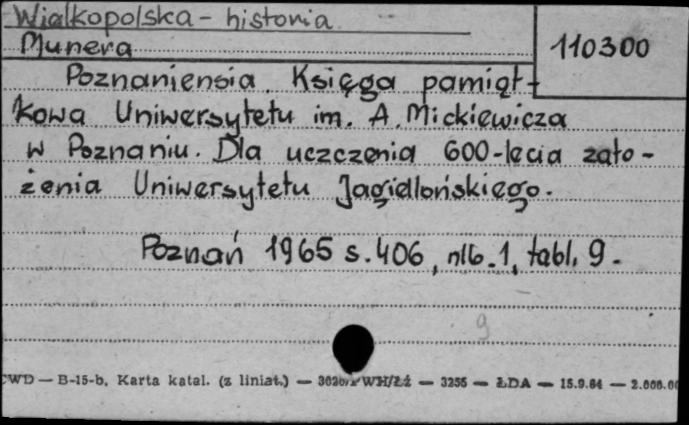 Wielkopolska - historia
Munera
110300
Poznaniensia. Księga pamiąt-
kowa Uniwersytetu im. A. Mickiewicza
w Poznaniu. Dla uczczenia 600-lecia zało-
żenia Uniwersytetu Jagiellońskiego.
Poznań 1965 s. 406, nlb. 1, tabl. 9.
9
CWD — B-15-b, Karta katal. (z liniat.) — WH/Łź — 3255 — ŁDA — 15.9.64 — 2.000.00